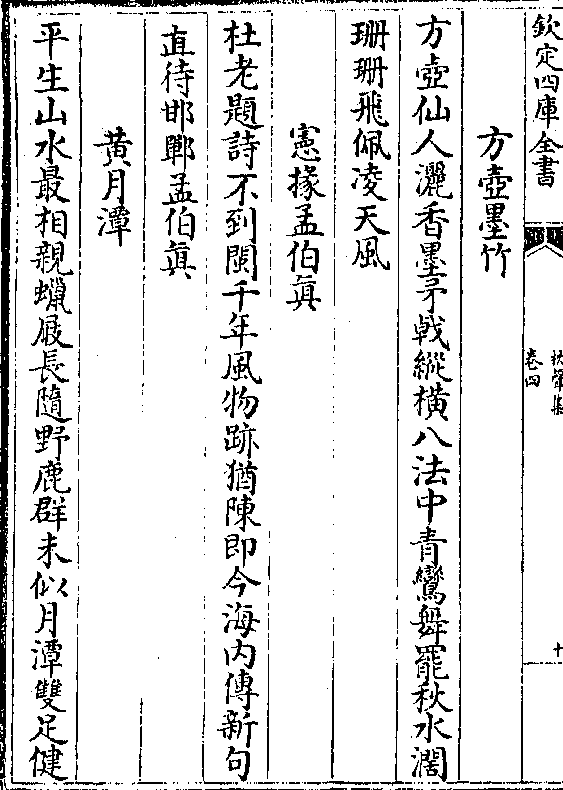 欽定四庫全書
卷四
十
方壺墨竹
方壺仙人灑香墨矛戟縱橫八法中青鸞舞罷秋水濶
珊珊飛佩凌天風
憲掾孟伯眞
杜老題詩不到閩千年風物跡猶陳即今海内傳新句
直待邯鄲孟伯眞
黄月潭
平生山水最相親蠟屐長隨野鹿群未似月潭雙足健